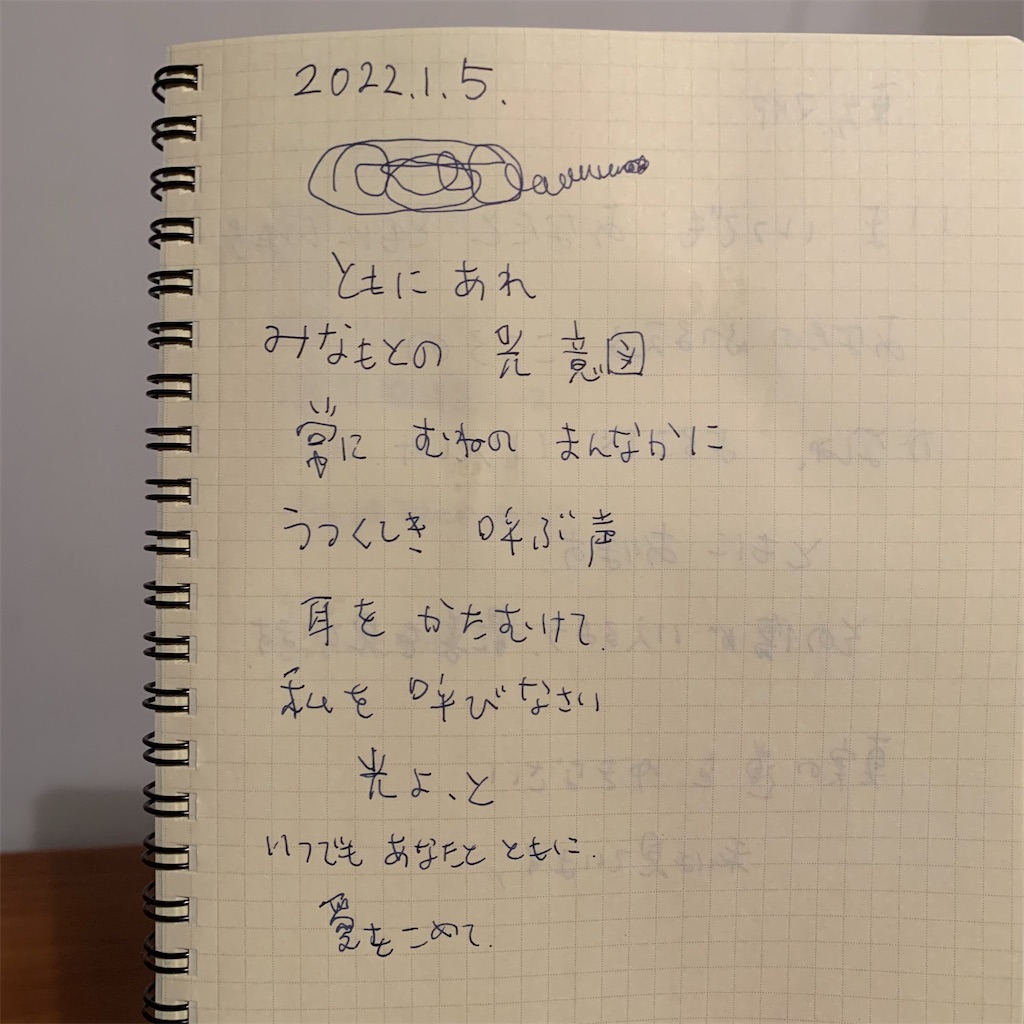 2022.1.5.
ともに あれ
みなもとの 光 意図
常に むねの まんなかに
うつくしき 呼ぶ声
耳を かたむけて.
私を 呼びなさい
光よ、と
いつでも あなたと ともに.
愛をこめて.